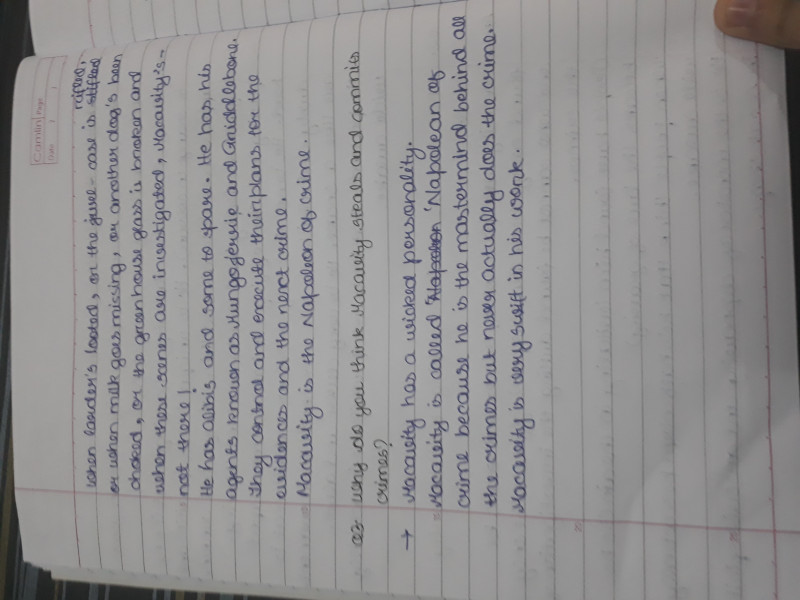 Camlin Page
Date
rifled,
When larder's looted, or the jwel-case is stifled
or when milk goes missing, or another dog's been
choked, or the greenhouse glass is broken and
when these scenes are investigated, Macavity's -
not there!
He has alibis and some to spare. He has, his
agents known as Mungojerrie and Griddlebone.
They control and execute their plans for the
evidences and the next crime.
Macavity is the Napolean of crime.
Q3- Why do you think Macavity steals and commits
crimes?
→ Macavity has a wicked personality.
Macavity is called 'Napolean 'Napolean of
crime because he is the mastermind behind all
the crimes but never actually does the crime.
Macavity is very swift in his work.